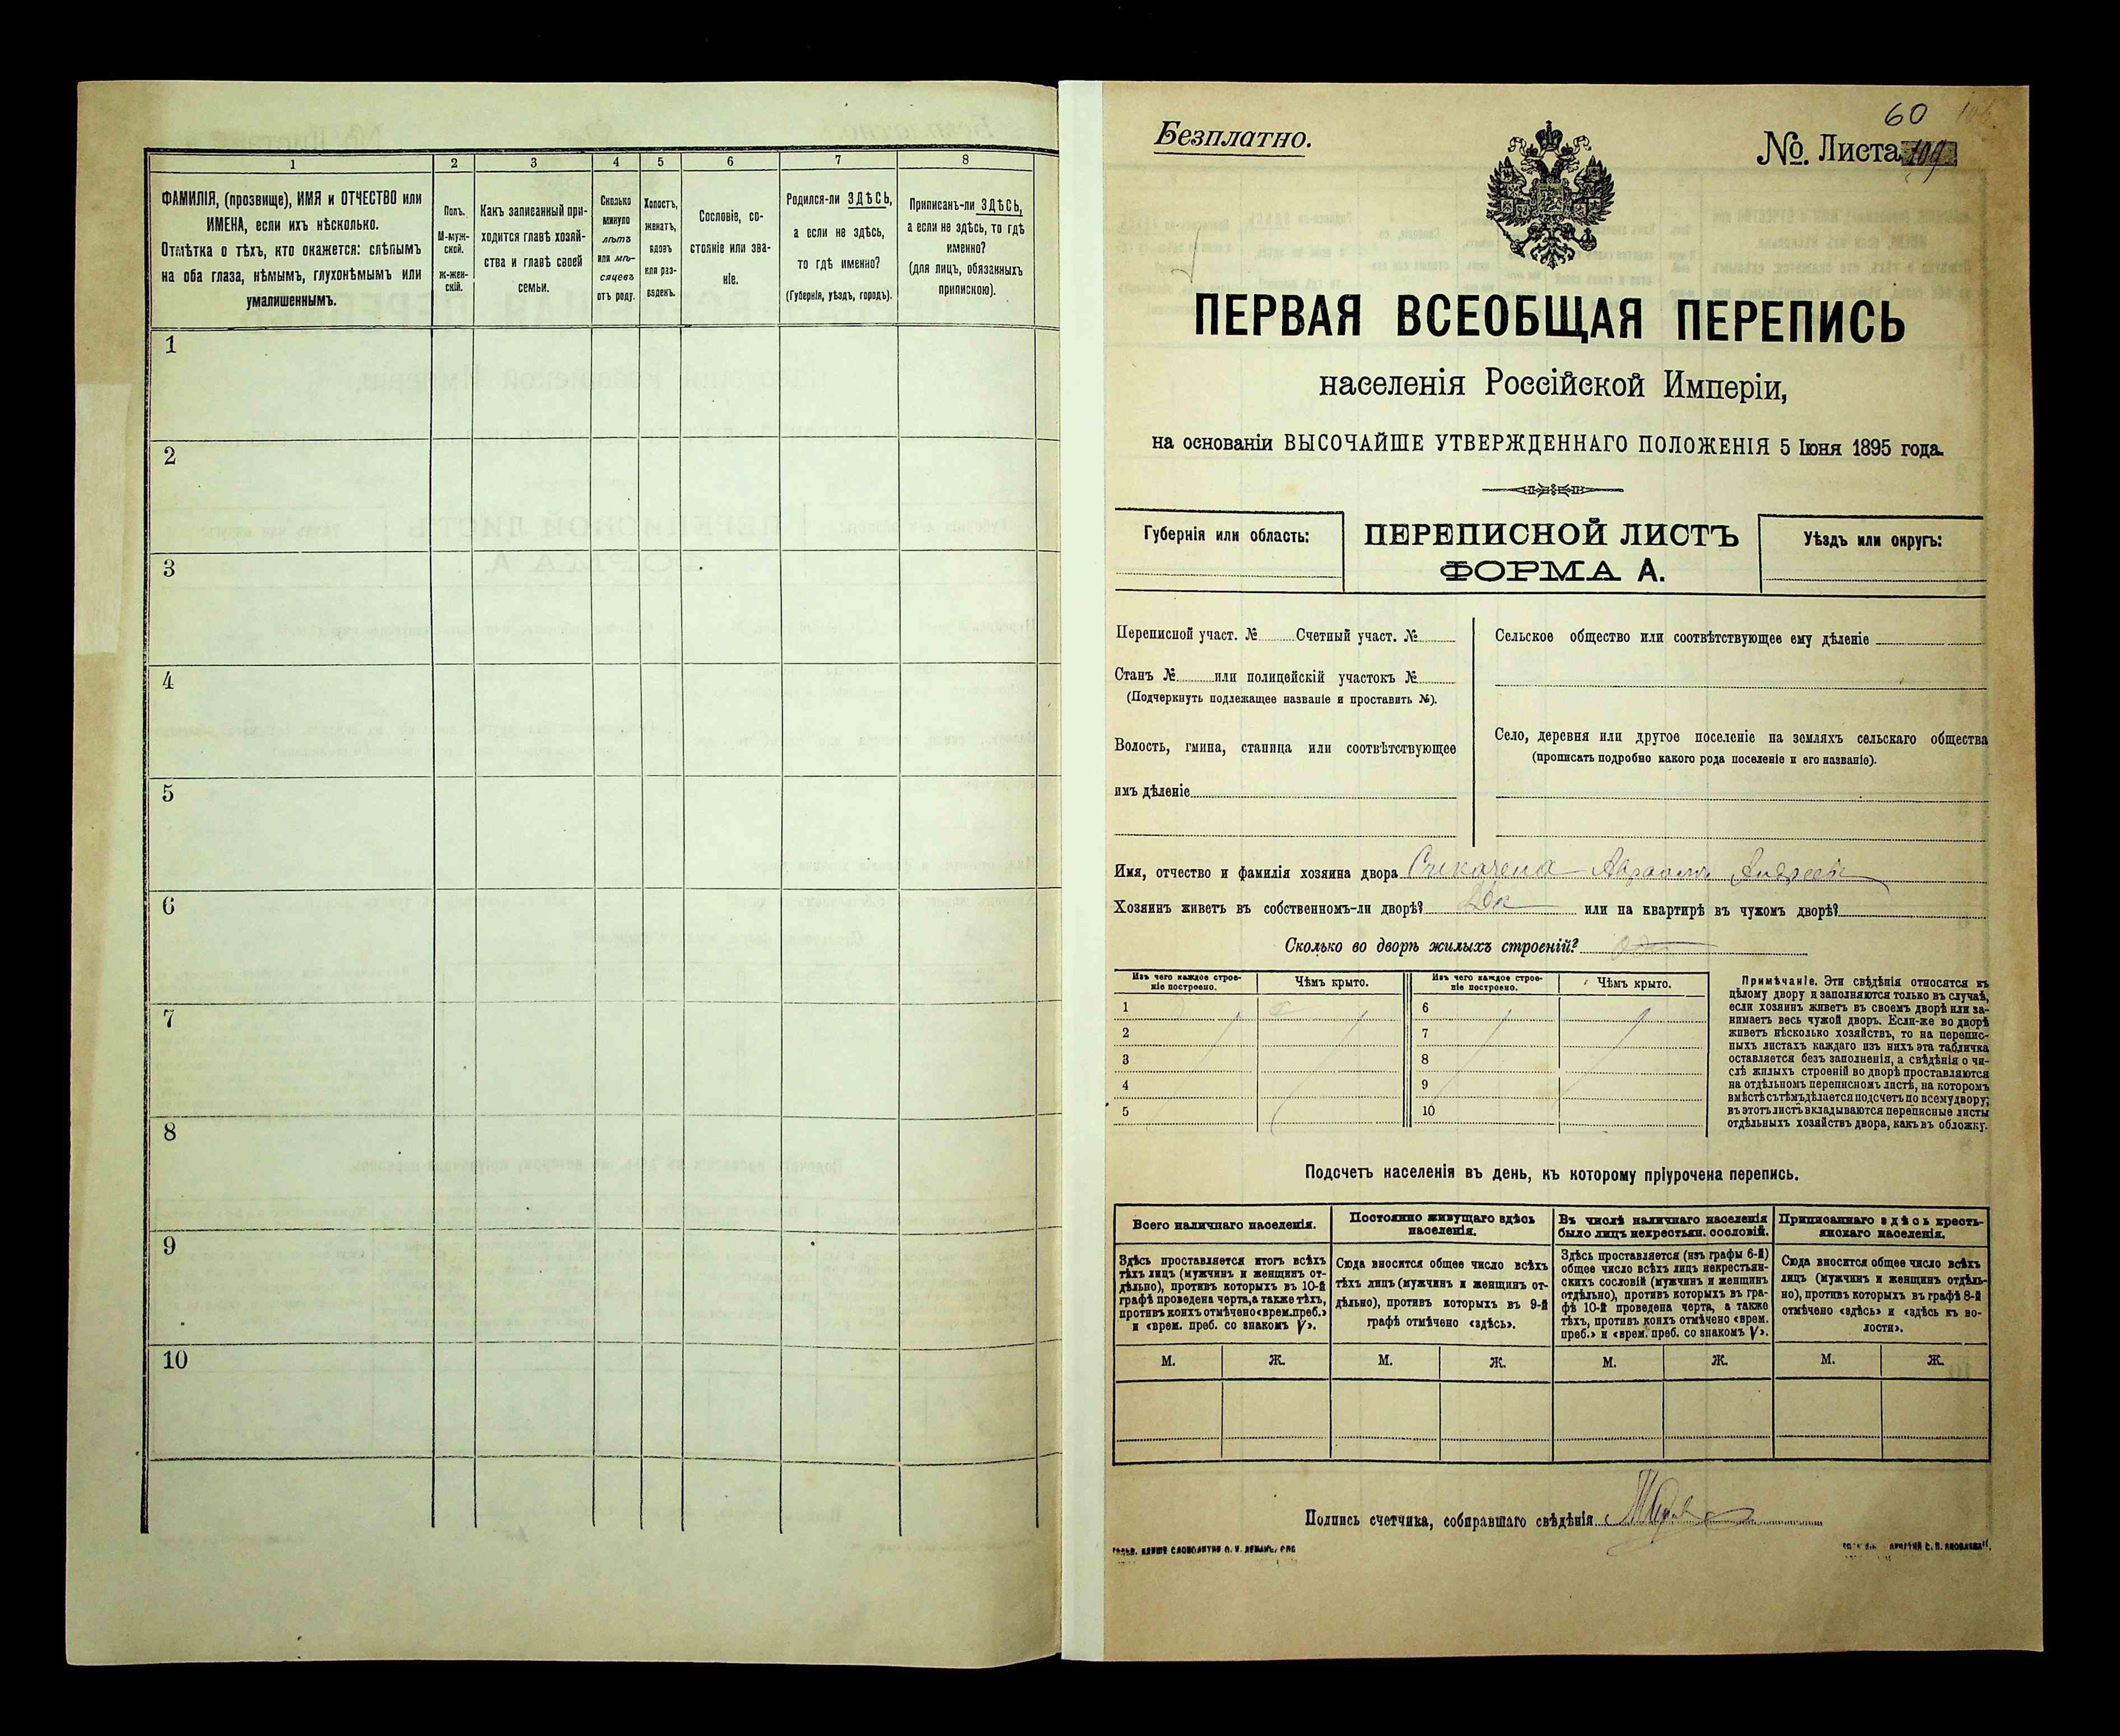 1
2
3
4
5
6
7
8
ФАМИЛІЯ, (прозвище), ИМЯ и ОТЧЕСТВО или
ИМЕНА, если ихъ нѣсколько.
Отмѣтка о тѣхъ, кто окажется: слѣпымъ
на оба глаза, нѣмымъ, глухонѣмымъ или
умалишеннымъ.
Полъ.
М-муж-
ской.
Ж-жен-
скій.
Какъ записанный при-
ходится главѣ хозяй-
ства и главѣ своей
семьи.
Сколько
минуло
лѣтъ
или мѣ-
сяцевъ
отъ роду.
Холостъ,
женатъ,
вдовъ
или раз-
веденъ.
Сословіе, со-
стояніе или зва-
ніе.
Родился-ли ЗДѢСЬ,
а если не здѣсь,
то гдѣ именно?
(Губернія, уѣздъ, городъ).
Приписанъ-ли ЗДѢСЬ,
а если не здѣсь, то гдѣ
именно?
(для лицъ, обязанныхъ
припискою).
1
2
3
4
5
6
7
8
9
10
60
Безплатно.
№. Листа 109
ПЕРВАЯ ВСЕОБЩАЯ ПЕРЕПИСЬ
населенія Россійской Имперіи,
на основаніи ВЫСОЧАЙШЕ УТВЕРЖДЕННАГО ПОЛОЖЕНІЯ 5 Іюня 1895 года.
Губернія или область:
ПЕРЕПИСНОЙ ЛИСТЪ
ФОРМА А.
Уѣздъ или округъ:
Переписной участ. № Счетный участ. №
Станъ № или полицейскій участокъ №
(Подчеркнуть подлежащее названіе и проставить №).
Волость, гмина, станица или соотвѣтствующее
имъ дѣленіе
Сельское общество или соотвѣтствующее ему дѣленіе
Село, деревня или другое поселеніе на земляхъ сельскаго общества
(прописать подробно какого рода поселеніе и его названіе).
Имя, отчество и фамилія хозяина двора
Хозяинъ живетъ въ собственномъ-ли дворѣ? или на квартирѣ въ чужомъ дворѣ?
Сколько во дворѣ жилыхъ строеній?
Изъ чего каждое строе-
ніе построено.
Чѣмъ крыто.
Изъ чего каждое строе-
ніе построено.
Чѣмъ крыто.
1
2
3
4
5
6
7
8
9
10
Примѣчаніе. Эти свѣдѣнія относятся къ
цѣлому двору и заполняются только въ случаѣ,
если хозяинъ живетъ въ своемъ дворѣ или за-
нимаетъ весь чужой дворъ. Если-же во дворѣ
живетъ нѣсколько хозяйствъ, то на перепис-
ныхъ листахъ каждаго изъ нихъ эта табличка
оставляется безъ заполненія, а свѣдѣнія о чи-
слѣ жилыхъ строеній во дворѣ проставляются
на отдѣльномъ переписномъ листѣ, на которомъ
вмѣстѣ съ тѣмъ дѣлается подсчетъ по всему двору;
въ этотъ листъ вкладываются переписные листы
отдѣльныхъ хозяйствъ двора, какъ въ обложку.
Подсчетъ населенія въ день, къ которому пріурочена перепись.
Всего наличнаго населенія.
Постоянно живущаго здѣсь
населенія.
Въ числѣ наличнаго населенія
было лицъ некрестьян. сословій.
Приписаннаго здѣсь кресть-
янскаго населенія.
Здѣсь проставляется итогъ всѣхъ
тѣхъ лицъ (мужчинъ и женщинъ от-
дѣльно), противъ которыхъ въ 10-й
графѣ проведена черта, а также тѣхъ,
противъ коихъ отмѣчено «врем. преб.»
и «врем. преб. со знакомъ V».
Сюда вносится общее число всѣхъ
тѣхъ лицъ (мужчинъ и женщинъ от-
дѣльно), противъ которыхъ въ 9-й
графѣ отмѣчено «здѣсь».
Здѣсь проставляется (изъ графы 6-й)
общее число всѣхъ лицъ некрестьян-
скихъ сословій (мужчинъ и женщинъ
отдѣльно), противъ которыхъ въ гра-
фѣ 10-й проведена черта, а также
тѣхъ, противъ коихъ отмѣчено «врем.
преб.» и «врем. преб. со знакомъ V».
Сюда вносится общее число всѣхъ
лицъ (мужчинъ и женщинъ отдѣль-
но), противъ которыхъ въ графѣ 8-й
отмѣчено «здѣсь» и «здѣсь къ во-
лости».
М.
Ж.
М.
Ж.
М.
Ж.
М.
Ж.
Подпись счетчика, собиравшаго свѣдѣнія